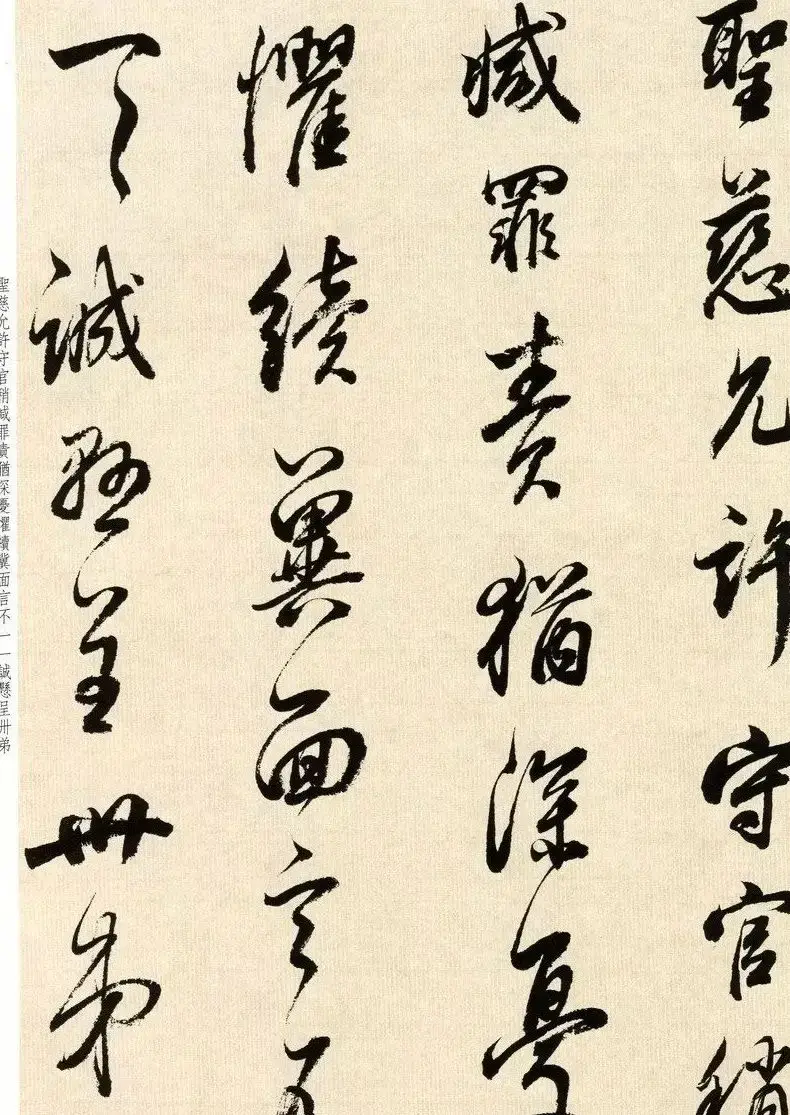 聖慈允許守官稍
減罪責猶深憂
懼續冀面言不
一一誠懸呈卅弟
聖慈允許守官稍減罪責猶深憂懼續冀面言不一一誠懸呈卅弟